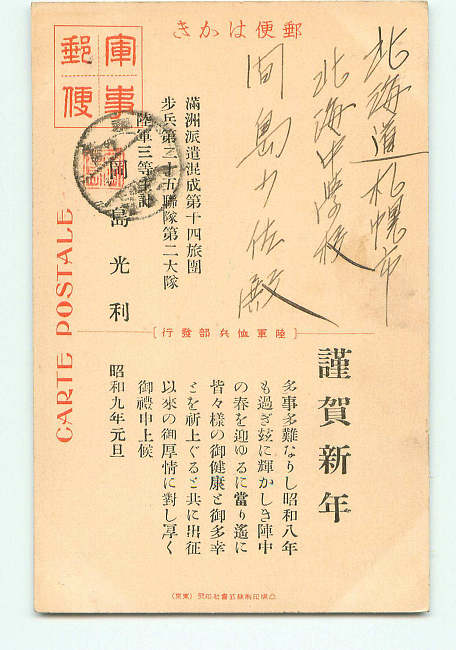 郵便はかき
軍事
郵便
北海道札幌市
北海中学校
間島少佐殿
満洲派遣混成第十四旅團
歩兵第三十五聯隊第二大隊
陸軍三等主計
岡島光利
CARTE POSTALE
【陸軍恤兵部發行】
謹賀新年
多事多難なりし昭和八年
も過ぎ玆に輝かしき陣中
の春を迎ゆるに當り遙に
皆々様の御健康と御多幸
とを祈上ぐると共に出征
以來の御厚情に對し厚く
御禮申上候
昭和九年元旦